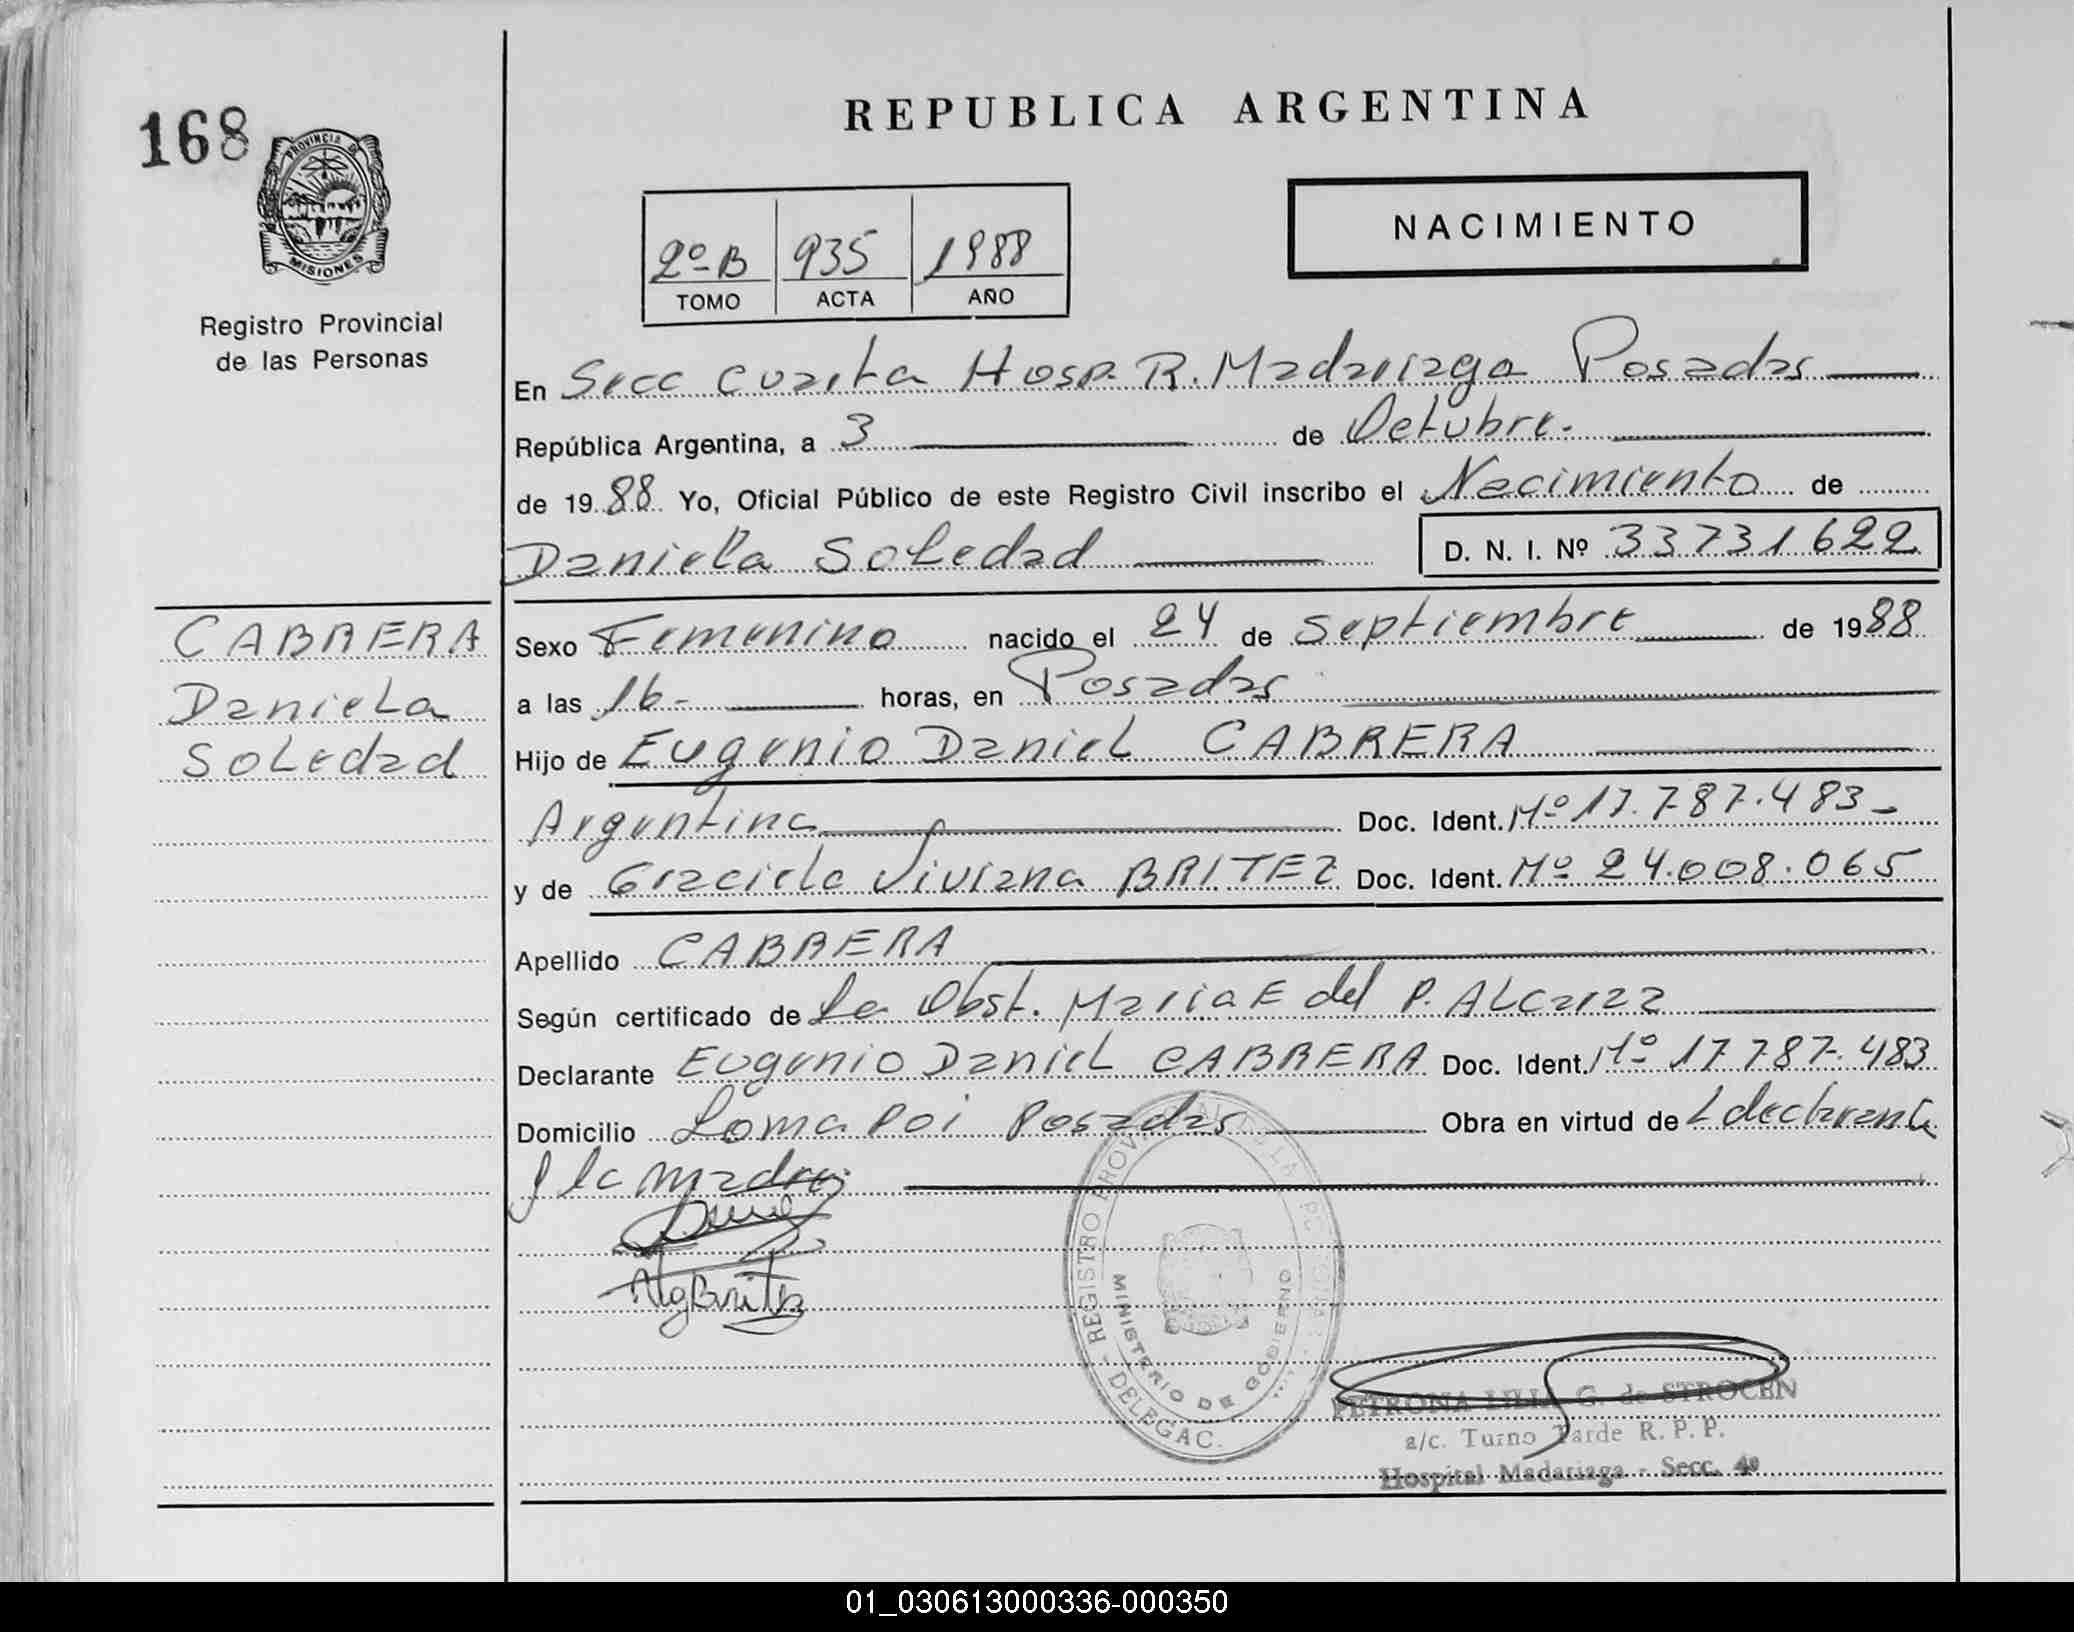 168
PROVINCIA DE
MISIONES
Registro Provincial
de las Personas
REPUBLICA ARGENTINA
2º-B 935 1988
TOMO ACTA AÑO
NACIMIENTO
En Secc cuarta Hosp. R. Madariaga Posadas
República Argentina, a 3 de Octubre.
de 19 88 Yo, Oficial Público de este Registro Civil inscribo el Nacimiento de
Daniela Soledad D. N. I. Nº 33731622
CABRERA
Daniela
Soledad
Sexo Femenino nacido el 24 de Septiembre de 1988
a las 16- horas, en Posadas
Hijo de Eugenio Daniel CABRERA
Argentina Doc. Ident. Mº 17.787.483-
y de Graciela Viviana BRITEZ Doc. Ident. Mº 24.008.065
Apellido CABRERA
Según certificado de La Obst. Maria E del P. ALcaraz
Declarante Eugenio Daniel CABRERA Doc. Ident. Mº 17 787.483
Domicilio Loma Poi Posadas Obra en virtud de L declarante
y la madre.
REGISTRO PROV
MINISTERIO DE GOBIERNO
DELEGAC.
PETRONA LILIA G. de STROCEN
a/c. Turno Tarde R. P. P.
Hospital Madariaga - Secc. 4ª
01_030613000336-000350